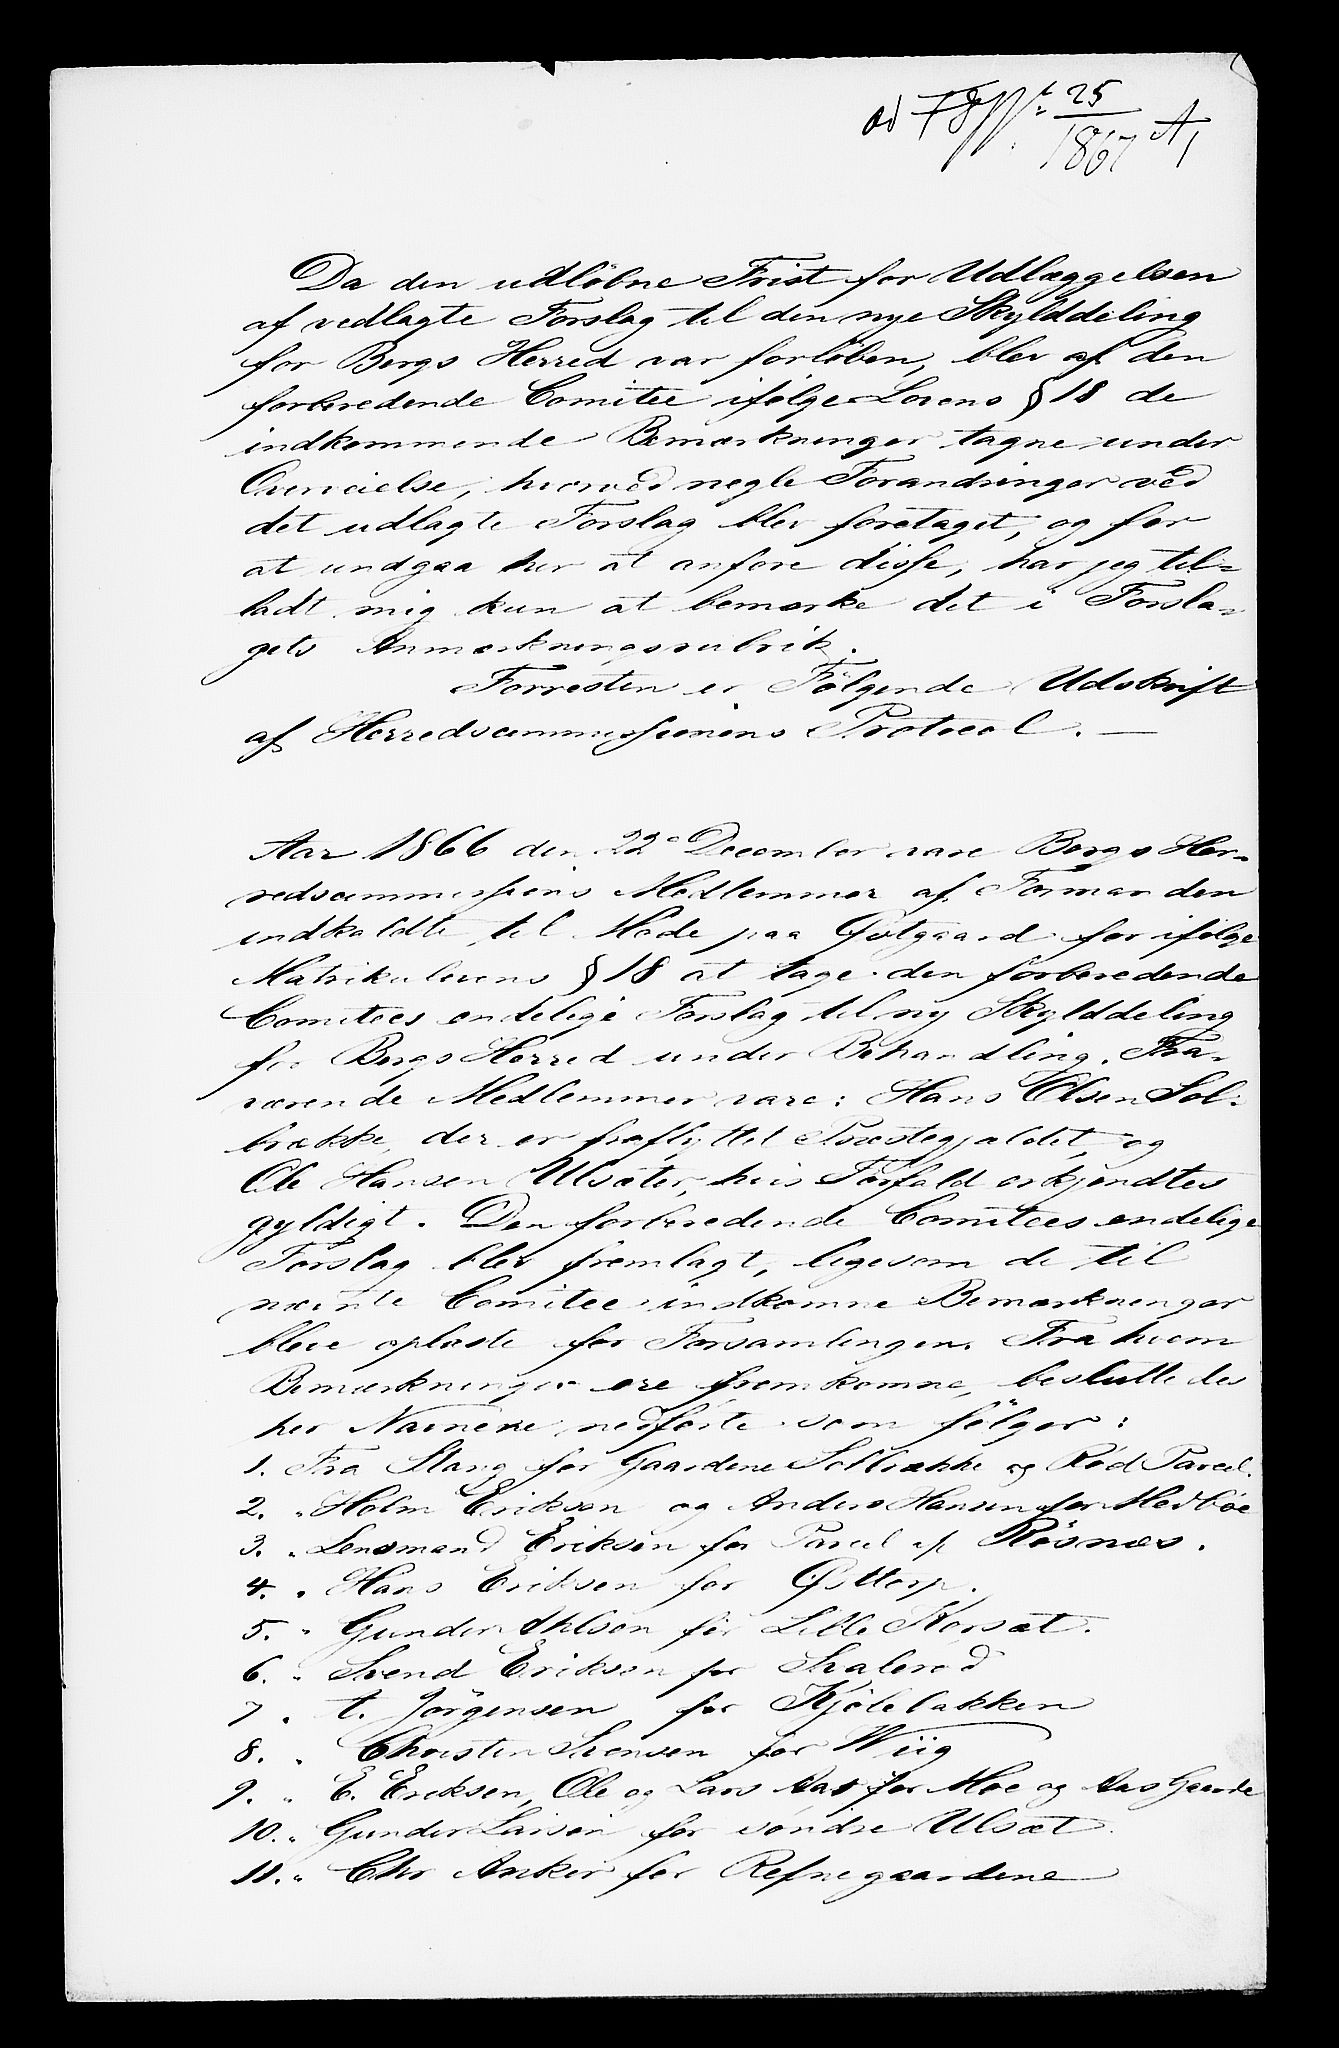 25
1867
Da den udløbne Frist for Udlæggelsen
af vedlagte Forslag til den nye Skylddeling
for Bergs Herred var forløben, blev af den
forberedende Comitee ifølge Lovens § 18 de
indkommende Bemærkninger tagne under
Overveielse, hvorved nogle Forandringer ved
det udlagte Forslag blev foretaget, og for
at undgaa her at anføre disse, har jeg til-
ladt mig kun at bemærke det i Forsla-
gets Anmærkningsrubrik.
Forresten er Følgende Udskrift
af Herredscommissionens Protocol. —
Aar 1866 den 22de December vare Bergs Her-
redscommissions Medlemmer af Formanden
indkaldte til Møde paa Østgaard for ifølge
Matrikulovens § 18 at tage den forberedende
Comitees endelige Forslag til ny Skylddeling
for Bergs Herred under Behandling. Fra-
værende Medlemmer vare: Hans Olsen Sol-
brække, der er fraflyttet Præstegjældet, og
Ole Hansen Ulsæter, hvis Forfald erkjendtes
gyldigt. Den forberedende Comitees endelige
Forslag blev fremlagt, ligesom de til
nævnte Comitee indkomne Bemærkninger
bleve oplæste for Forsamlingen. Fra hvem
Bemærkninger ere fremkomne, besluttedes
her Navnene nedførte som følger:
1. Fra Stang for Gaardene Solbrække og Rød Parcel.
2. " Holm Eriksen og Anders Hansen for Hedbøe
3. " Lensmand Eriksen for Parcel af Røsnæs.
4. " Hans Eriksen for Østtorp.
5. " Gunder Olsen for Lille Korsæt.
6. " Svend Eriksen for Skalerød
7. " A. Jørgensen for Kjølebakken
8. " Christen Svensen for Wiig
9. " E. Eriksen, Ole og Lars Aas for Moe og Aas Gaarde
10. " Gunder Larsen for søndre Ulsæt.
11. " Chr Anker for Refnegaardene